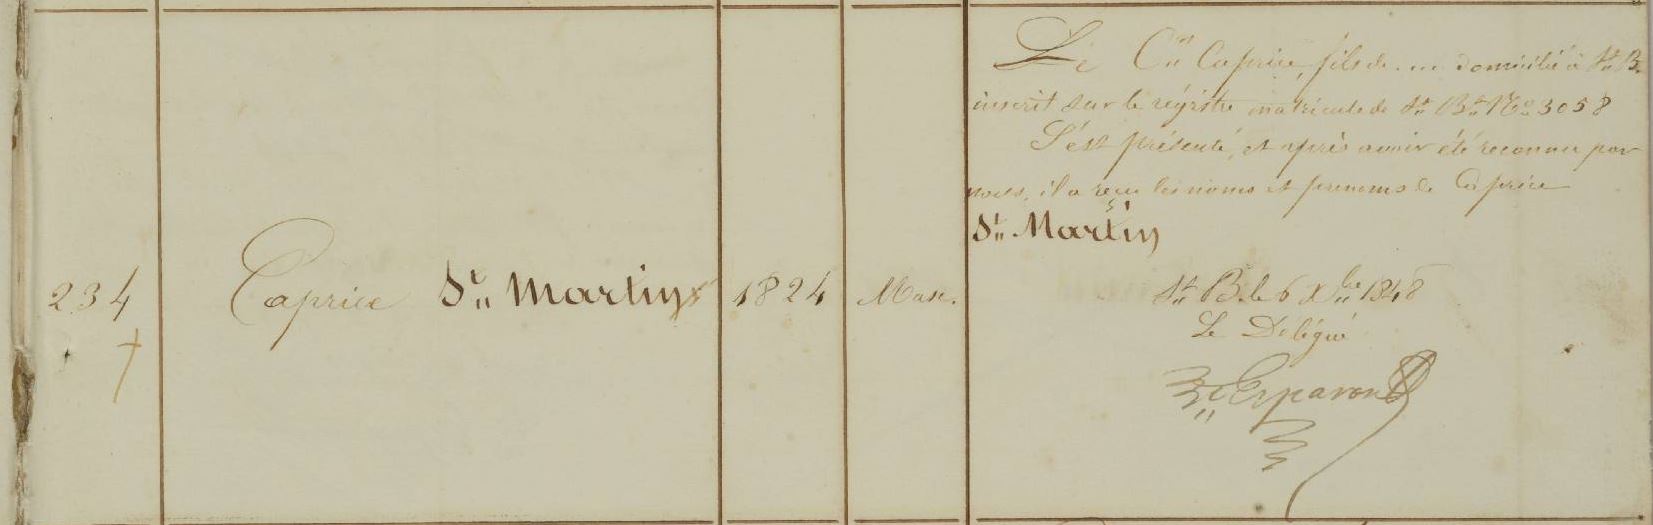 234
Caprice St. Martin
1824
Masc.
Le Cen Caprice, fils de ... domicilié à St. B.
inscrit sur le régistre matricule de St. Bt. No 3058
S'est présenté, et après avoir été reconnu par
nous, il a reçu les noms et prenoms de Caprice
St. Martin
St. B. le 6 Xbre 1848
Le Délégué
Esparon